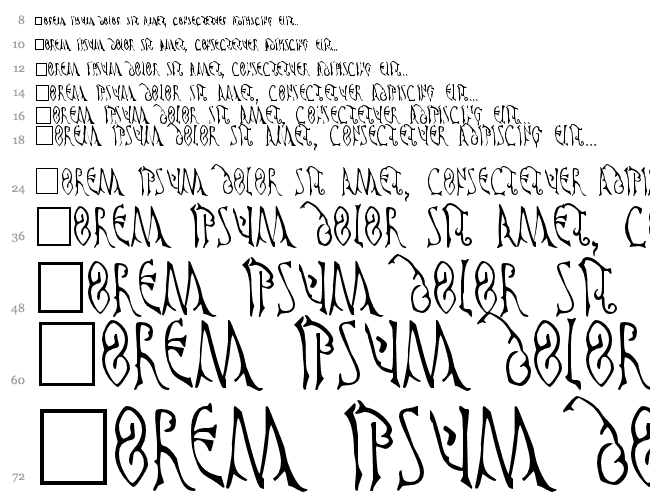 8 □orem ipsum dolor sit amet, consectetuer adipiscing elit...
10 □orem ipsum dolor sit amet, consectetuer adipiscing elit...
12 □orem ipsum dolor sit amet, consectetuer adipiscing elit...
14 □orem ipsum dolor sit amet, consectetuer adipiscing elit...
16 □orem ipsum dolor sit amet, consectetuer adipiscing elit...
18 □orem ipsum dolor sit amet, consectetuer adipiscing elit...
24 □orem ipsum dolor sit amet, consectetuer adipi
36 □orem ipsum dolor sit amet, c
48 □orem ipsum dolor sit
60 □orem ipsum dolor
72 □orem ipsum do